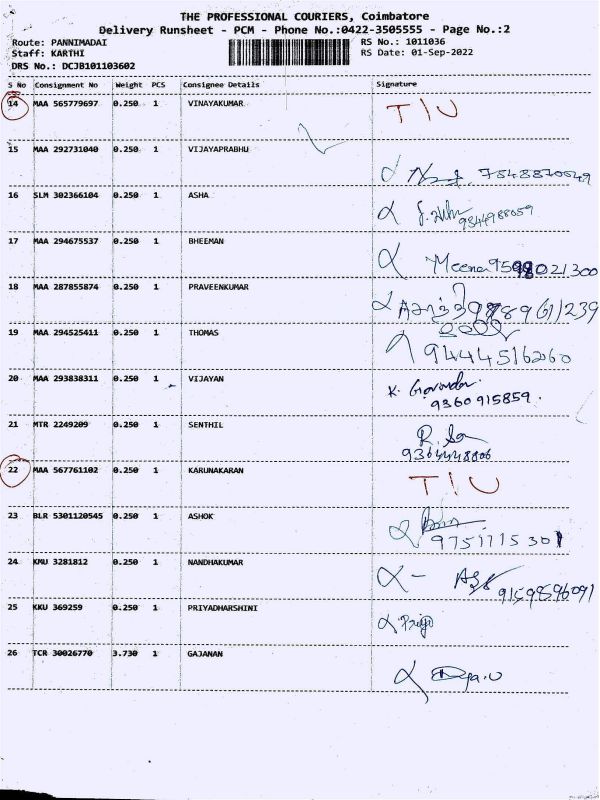 THE PROFESSIONAL COURIERS, Coimbatore
Delivery Runsheet - PCM - Phone No.:0422-3505555 - Page No.:2
Route: PANNIMADAI RS No.: 1011036
Staff: KARTHI RS Date: 01-Sep-2022
DRS No.: DCJB101103602
S No Consignment No Weight PCS Consignee Details Signature
14 MAA 565779697 0.250 1 VINAYAKUMAR T/U
15 MAA 292731040 0.250 1 VIJAYAPRABHU
16 SLM 302366104 0.250 1 ASHA 9344988059
17 MAA 294675537 0.250 1 BHEEMAN Meena
18 MAA 287855874 0.250 1 PRAVEENKUMAR
19 MAA 294525411 0.250 1 THOMAS 9444516260
20 MAA 293838311 0.250 1 VIJAYAN K. 9360915859.
21 MTR 2249209 0.250 1 SENTHIL 9364448806
22 MAA 567761102 0.250 1 KARUNAKARAN T/U
23 BLR 5301120545 0.250 1 ASHOK 9751715301
24 KMU 3281812 0.250 1 NANDHAKUMAR 9159896091
25 KKU 369259 0.250 1 PRIYADHARSHINI
26 TCR 30026770 3.730 1 GAJANAN